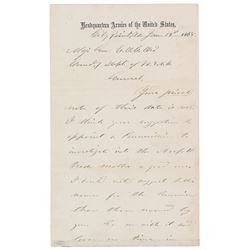 Headquarters Armies of the United States,
City Point, Va. Jan. 13th 1865
Maj. Gen.
Comd.g Dept. of
General,
Your private
note of this date is
I think your suggestion to
appoint a Commission to
investigate into the Norfolk
trade matter a good one.
I could not suggest better
names for the Commission
than those named by
you. Go on with it and
lose no time in